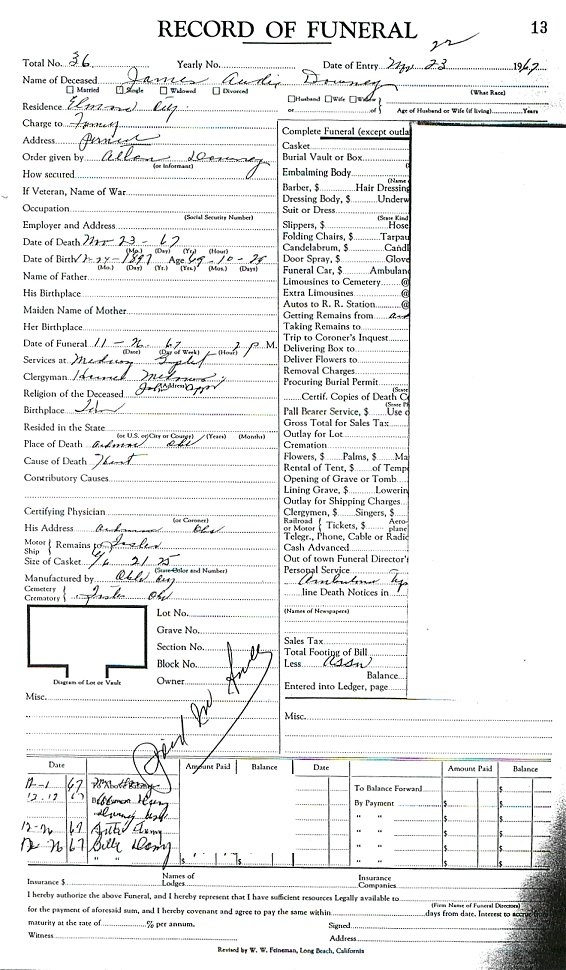 RECORD OF FUNERAL
13
22
Total No. 36 Yearly No. Date of Entry Nov 23 1967
Name of Deceased James Downey
(What Race)
Married Single Widowed Divorced
Husband Wife Widow or of Age of Husband or Wife (if living) Years
Residence Elmore City
Charge to Family
Address
Order given by Allen Downey
(or Informant)
How secured
If Veteran, Name of War
Occupation
(Social Security Number)
Employer and Address
Date of Death Nov 23 - 67
(Mo.) (Day) (Yr.) (Hour)
Date of Birth 12-24-1897 Age 69-10-29
(Mo.) (Day) (Yr.) (Yrs.) (Mos.) (Days)
Name of Father
His Birthplace
Maiden Name of Mother
Her Birthplace
Date of Funeral 11 - 26 67 2 P M.
(Date) (Day of Week) (Hour)
Services at
Clergyman
(Address)
Religion of the Deceased
Birthplace
Resided in the State
(or U.S. or City or County) (Years) (Months)
Place of Death Ardmore Okla
Cause of Death Heart
Contributory Causes
Certifying Physician
(or Coroner)
His Address Ardmore Okla
Motor Ship Remains to Foster
Size of Casket 6/6 21 25
(State Color and Number)
Manufactured by Okla City
Cemetery Crematory Foster Okla
Lot No.
Grave No.
Section No.
Block No.
Owner
Diagram of Lot or Vault
Misc.
Paid in full
Complete Funeral (except outla
Casket
Burial Vault or Box
Embalming Body
(Name
Barber, $ Hair Dressing
Dressing Body, $ Underw
Suit or Dress
(State Kind
Slippers, $ Hose
Folding Chairs, $ Tarpau
Candelabrum, $ Candl
Door Spray, $ Glove
Funeral Car, $ Ambulan
Limousines to Cemetery @
Extra Limousines @
Autos to R. R. Station @
Getting Remains from
Taking Remains to
Trip to Coroner's Inquest
Delivering Box to
Deliver Flowers to
Removal Charges
Procuring Burial Permit
(State
Certif. Copies of Death C
(State Pl
Pall Bearer Service, $ Use o
Gross Total for Sales Tax
Outlay for Lot
Cremation
Flowers, $ Palms, $ Ma
Rental of Tent, $ of Temp
Opening of Grave or Tomb
Lining Grave, $ Lowerin
Outlay for Shipping Charges
Clergymen, $ Singers, $
Railroad or Motor Tickets, $ Aero-plane
Telegr., Phone, Cable or Radio
Cash Advanced
Out of town Funeral Director's
Personal Service
Ambulance
line Death Notices in
(Names of Newspapers)
Sales Tax
Total Footing of Bill
Less Assn
Balance
Entered into Ledger, page
Misc.
Date Amount Paid Balance Date Amount Paid Balance
12-1 67 To Above Balance To Balance Forward $ $
12-12 67 By By Payment $ $
" " $
12-26 67 " " $
12-26 67 Billy " " $
" " $ $
Insurance $ Names of Lodges Insurance Companies
I hereby authorize the above Funeral, and I hereby represent that I have sufficient resources Legally available to
(Firm Name of Funeral Directors)
for the payment of aforesaid sum, and I hereby covenant and agree to pay the same within days from date. Interest to accrue
maturity at the rate of % per annum. Signed
Witness Address
Revised by W. W. Feineman, Long Beach, California